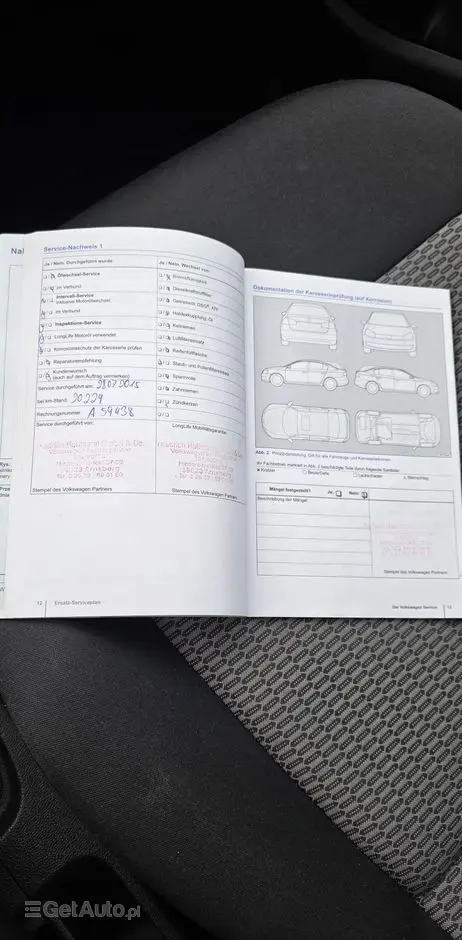 Service-Nachweis 1
Ja / Nein. Durchgeführt wurde:
Ölwechsel-Service
im Verbund
Intervall-Service
inklusive Motorölwechsel
im Verbund
Inspektions-Service
LongLife Motoröl verwendet
Korrosionsschutz der Karosserie prüfen
Reparaturempfehlung
Kundenwunsch
(auch auf dem Auftrag vermerken)
Service durchgeführt am:
bei km-Stand: 30229
Rechnungsnummer: A 59438
Service durchgeführt von:
Stempel des Volkswagen Partners
Ja / Nein. Wechsel von:
Bremsflüssigkeit
Dieselkraftstofffilter
Haldexkupplung: Öl
Keilriemen
Luftfiltereinsatz
Reifenfüllflasche
Staub- und Pollenfiltereinsatz
Spannrolle
Zahnriemen
Zündkerzen
LongLife Mobilitätsgarantie:
Stempel des Volkswagen Partners
12 Ersatz-Serviceplan
Dokumentation der Karosserieprüfung (auf Korrosion)
Abb. 2 Prinzipdarstellung: Gilt für alle Fahrzeuge und Karosserieformen
Kratzer
Beule/Delle
Lackschaden
Steinschlag
Mängel festgestellt? Ja: Nein:
Beschreibung der Mängel:
Stempel des Volkswagen Partners
Der Volkswagen Service 13
GetAuto.pl